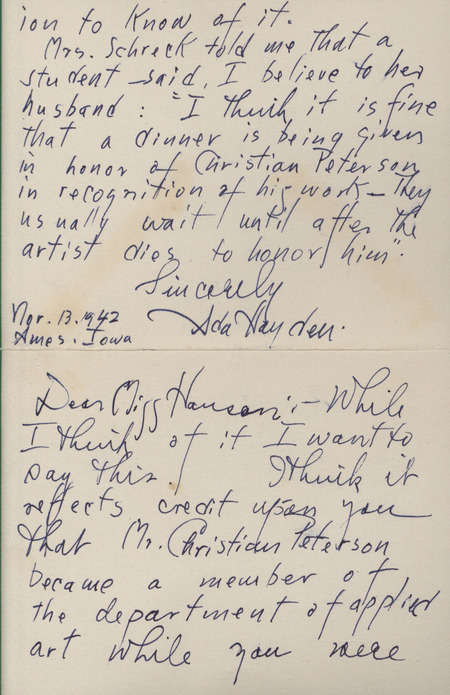 ion to know of it.
Mrs. Schreck told me that a
student said, I believe to her
husband: "I think it is fine
that a dinner is being given
in honor of Christian Peterson
in recognition of his work — They
usually wait until after the
artist dies to honor him".
Sincerely
Ada Hayden.
Nov. 13, 1942
Ames. Iowa
Dear Miss Hansen: — While
I think of it I want to
say this. I think it
reflects credit upon you
that Mr. Christian Peterson
became a member of
the department of applied
art while you were